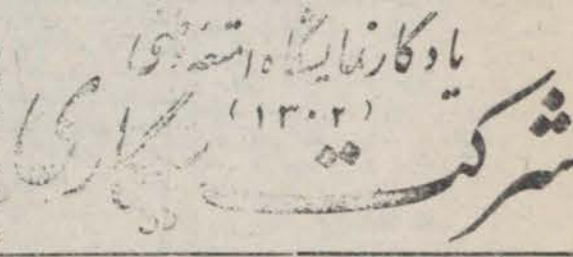 یادگار نمایشگاه امتعه وطنی
(۱۳۰۲)
شرکت